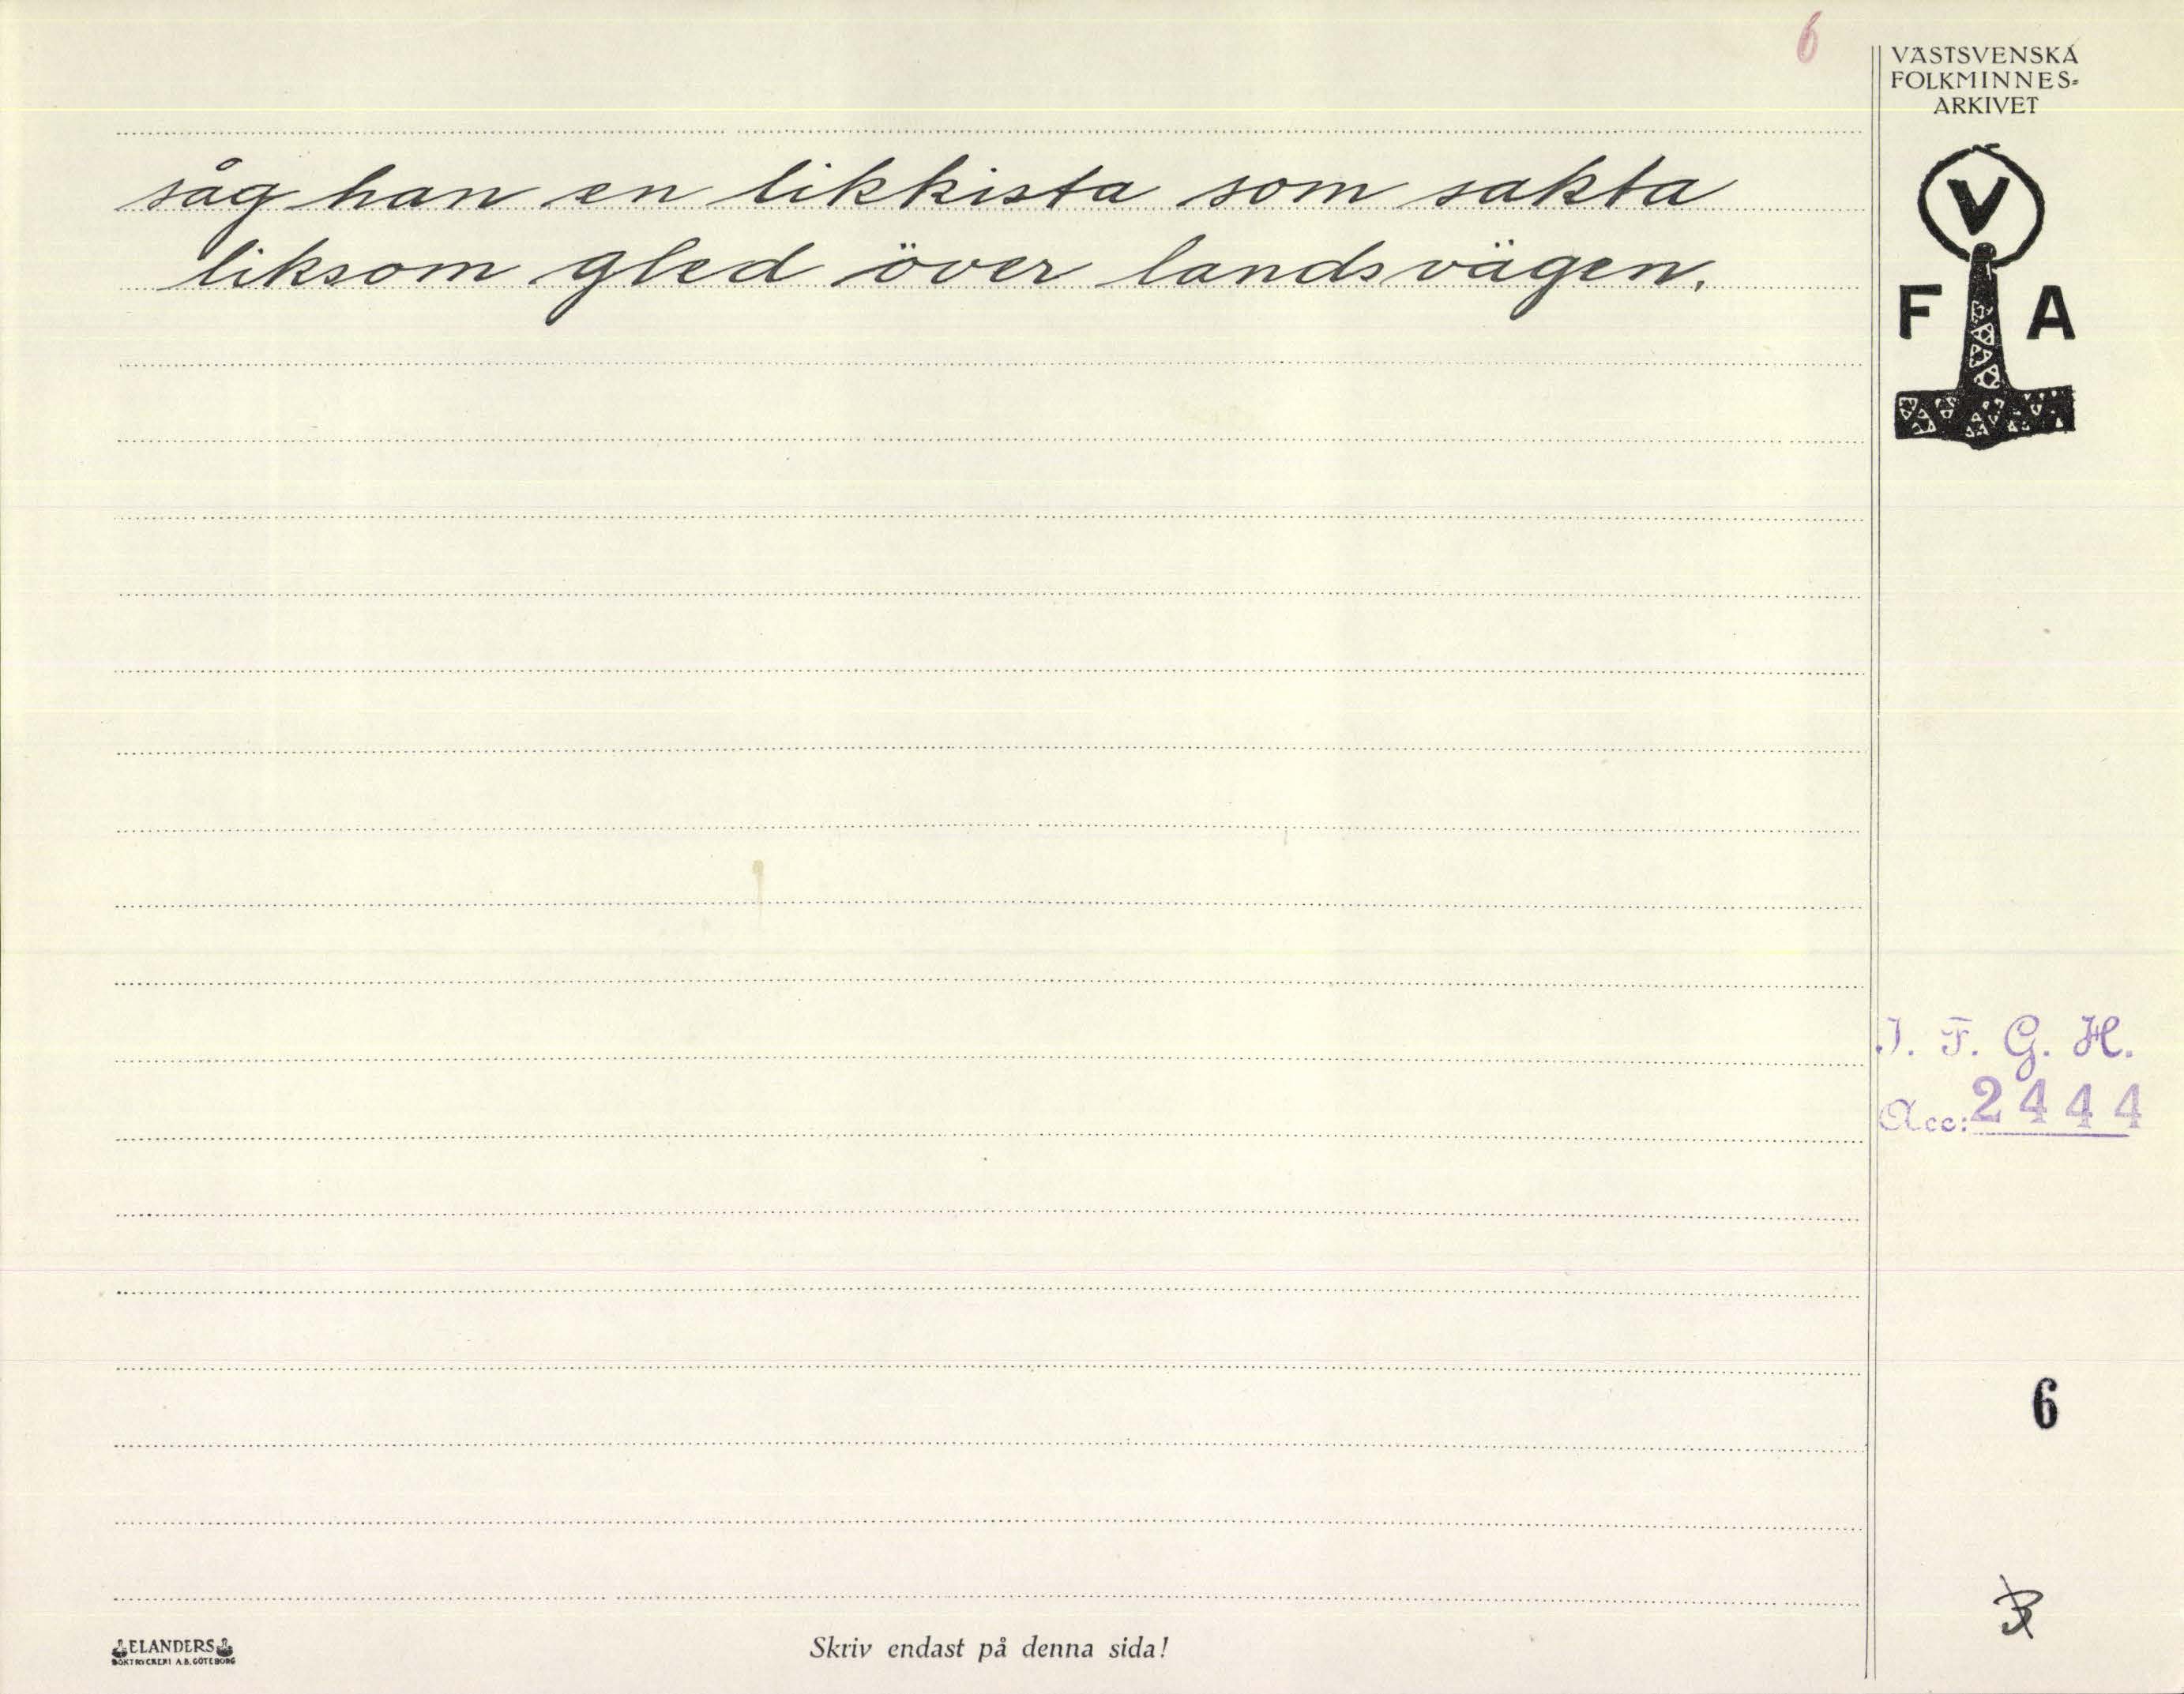 6
VÄSTSVENSKA
FOLKMINNES-
ARKIVET
V
F A
såg han en likkista som sakta
liksom gled över landsvägen.
I. F. G. H.
Acc: 2444
6
ELANDERS
BOKTRYCKERI A.B. GÖTEBORG
Skriv endast på denna sida!